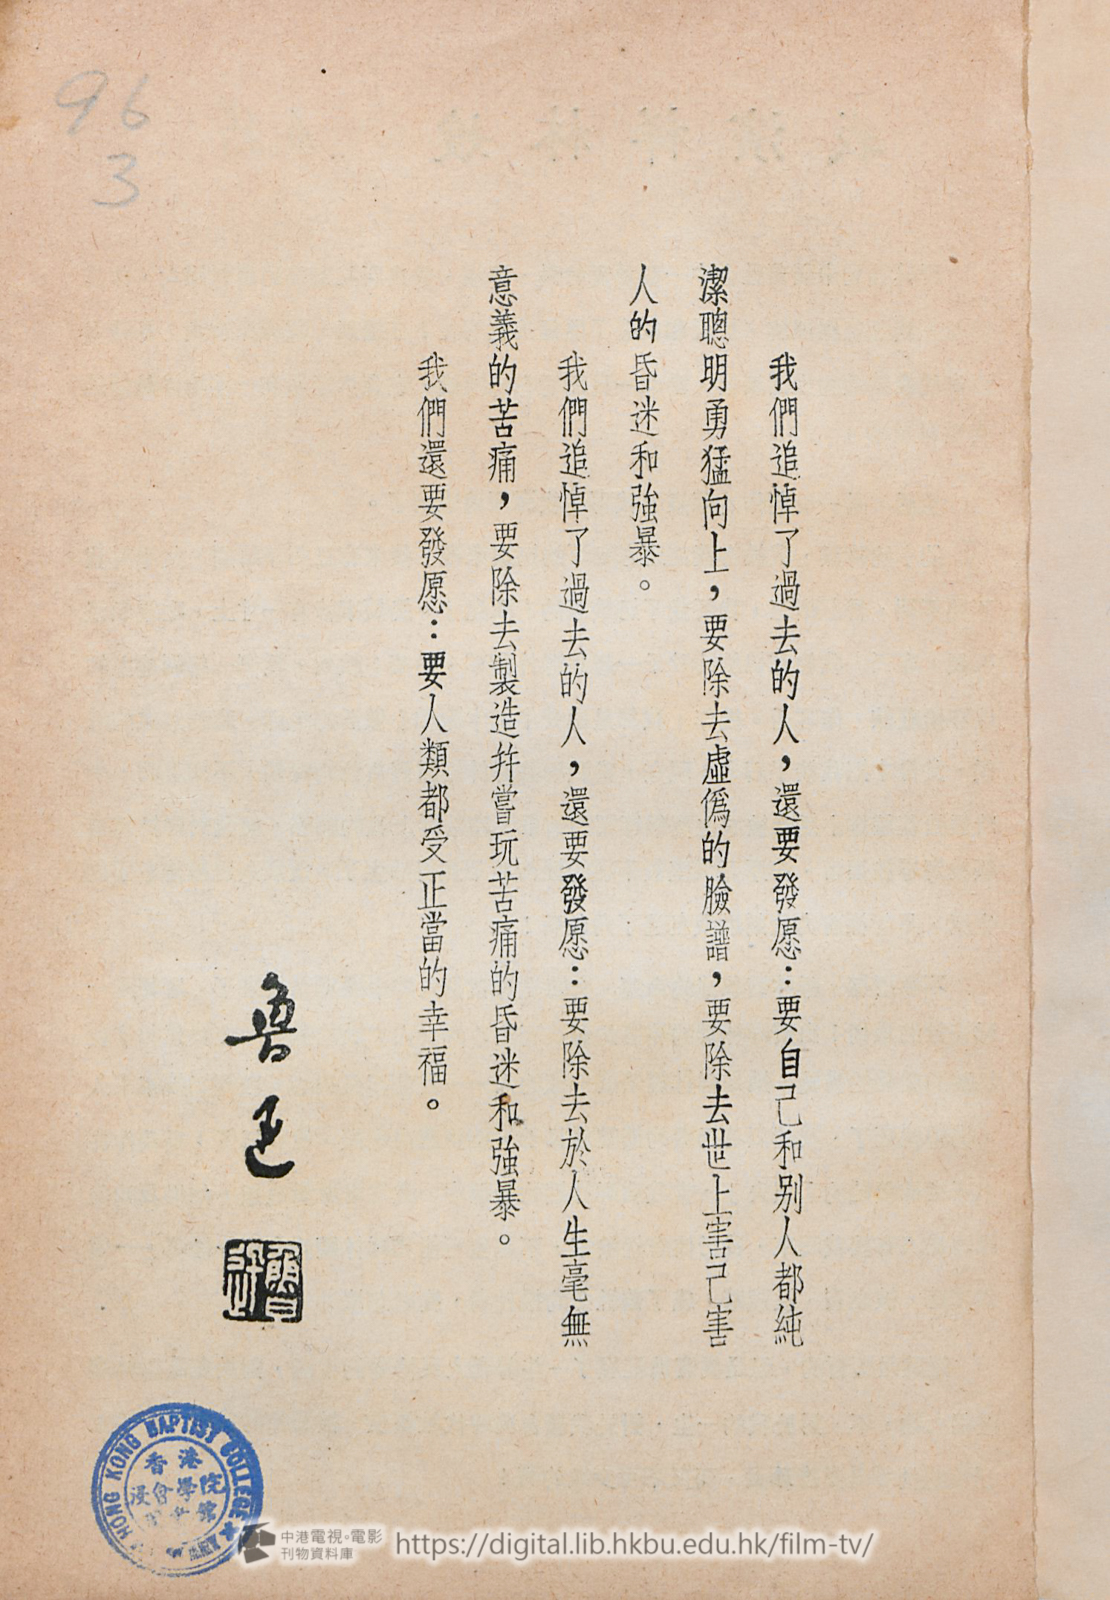 96
3
我們追悼了過去的人，還要發愿：要自己和別人都純
潔聰明勇猛向上，要除去虛僞的臉譜，要除去世上害己害
人的昏迷和強暴。
我們追悼了過去的人，還要發愿：要除去於人生毫無
意義的苦痛，要除去製造幷嘗玩苦痛的昏迷和強暴。
我們還要發愿：要人類都受正當的幸福。
魯迅
魯迅
HONG KONG BAPTIST COLLEGE
香港
浸會學院
中港電視·電影
刊物資料庫
https://digital.lib.hkbu.edu.hk/film-tv/